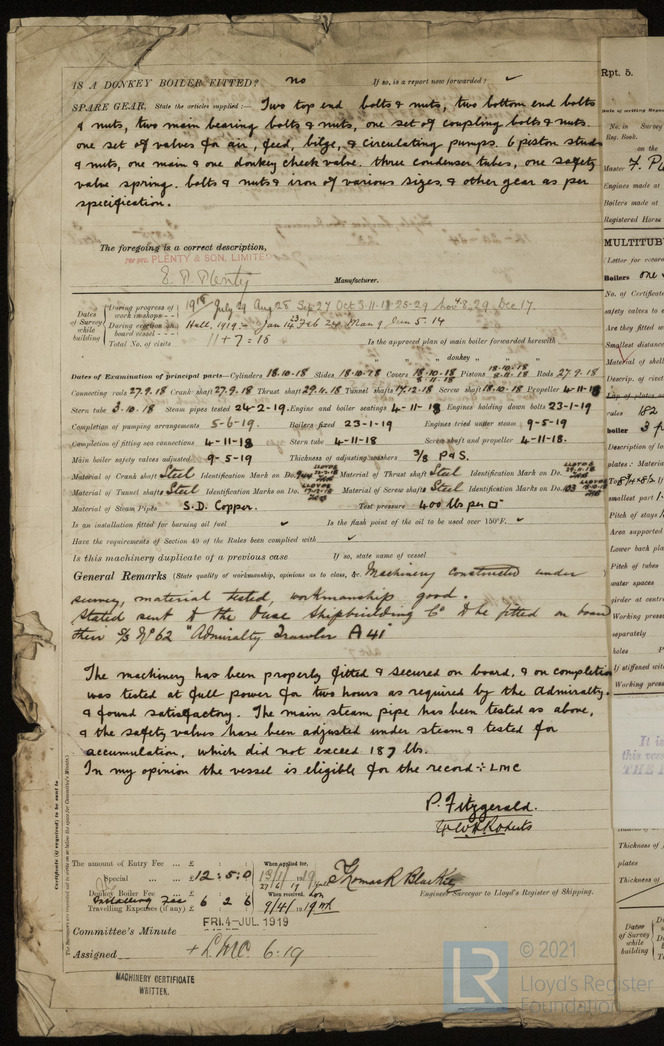 IS A DONKEY BOILER FITTED? no If so, is a report now forwarded? ✓
SPARE GEAR. State the articles supplied:— Two top end bolts & nuts, two bottom end bolts
& nuts, two main bearing bolts & nuts, one set of coupling bolts & nuts.
one set of valves for air, feed, bilge, & circulating pumps. 6 piston studs
& nuts, one main & one donkey check valve. three condenser tubes, one safety
valve spring. bolts & nuts & iron of various sizes & other gear as per
specification.
The foregoing is a correct description,
PLENTY & SON, LIMITED
E. P. Plenty Manufacturer.
Dates of Survey while building
During progress of work in shops - - 1918 July 29 Aug 28 Sep 27 Oct 3-11-18-25-29 Nov 4.8.29 Dec 17.
During erection on board vessel - - - Hull. 1919:- Jan 14. 23 Feb 24 Mar 9 Jun 5. 14
Total No. of visits 11 + 7 = 18 Is the approved plan of main boiler forwarded herewith
" " " donkey " " "
Dates of Examination of principal parts—Cylinders 18.10.18 Slides 18.10.18 Covers 18.10.18 8.11.18 Pistons 18.10.18 8.11.18 Rods 27.9.18
Connecting rods 27.9.18 Crank shaft 27.9.18 Thrust shaft 29.4.18 Tunnel shafts 17.12.18 Screw shaft 18.10.18 Propeller 4-11-18
Stern tube 3.10.18 Steam pipes tested 24-2-19. Engine and boiler seatings 4-11-18 Engines holding down bolts 23-1-19
Completion of pumping arrangements 5-6-19. Boilers fixed 23-1-19 Engines tried under steam 9-5-19
Completion of fitting sea connections 4-11-18 Stern tube 4-11-18 Screw shaft and propeller 4-11-18.
Main boiler safety valves adjusted 9-5-19 Thickness of adjusting washers 3/8 P & S.
Material of Crank shaft Steel Identification Mark on Do. Material of Thrust shaft Steel Identification Mark on Do.
Material of Tunnel shafts Steel Identification Marks on Do. Material of Screw shafts Steel Identification Marks on Do.
Material of Steam Pipes S.D. Copper. Test pressure 400 lbs per □"
Is an installation fitted for burning oil fuel ✓ Is the flash point of the oil to be used over 150°F. ✓
Have the requirements of Section 49 of the Rules been complied with ✓
Is this machinery duplicate of a previous case If so, state name of vessel
General Remarks (State quality of workmanship, opinions as to class, &c. Machinery constructed under
survey, material tested, workmanship good.
Stated sent to the Ouse Shipbuilding Co to be fitted on board
their S/S No 62 "Admiralty Trawler A 41"
The machinery has been properly fitted & secured on board, & on completion
was tested at full power for two hours as required by the Admiralty.
& found satisfactory. The main steam pipe has been tested as above,
& the safety valves have been adjusted under steam & tested for
accumulation, which did not exceed 187 lbs.
In my opinion the vessel is eligible for the record + LMC
P. Fitzgerald.
W H Roberts
The amount of Entry Fee ... £ : : When applied for,
Special ... ... £ 12 : 5 : 0 13/1/1919
Donkey Boiler Fee ... £ 27/6/19
Installing Fee £ 6 2 6 When received,
Travelling Expenses (if any) £ 9/4/1919
Thomas R Blackley
Engineer Surveyor to Lloyd's Register of Shipping.
Committee's Minute FRI. 4-JUL 1919
Assigned + LMC. 6.19
MACHINERY CERTIFICATE
WRITTEN.
Rpt. 5.
No. in Survey
Reg. Book.
on the
Master
Engines made at
Boilers made at
Registered Horse
MULTITUB
(Letter for record
Boilers one
No. of Certificate
safety valves to e
Are they fitted w
Smallest distance
Material of shell
Descrip. of rivet
Lap of plates
rules 182
boiler
Description of lo
plates: Materia
smallest part
Pitch of stays
Area supported
Lower back pla
Pitch of tubes
water spaces
girder at centre
Working pressu
separately
holes
If stiffened wit
Working press
It is
this vess
THE
Thickness of
plates
Thickness of
Dates
of Survey
while
building
LR
© 2021
Lloyd's Register
Foundation